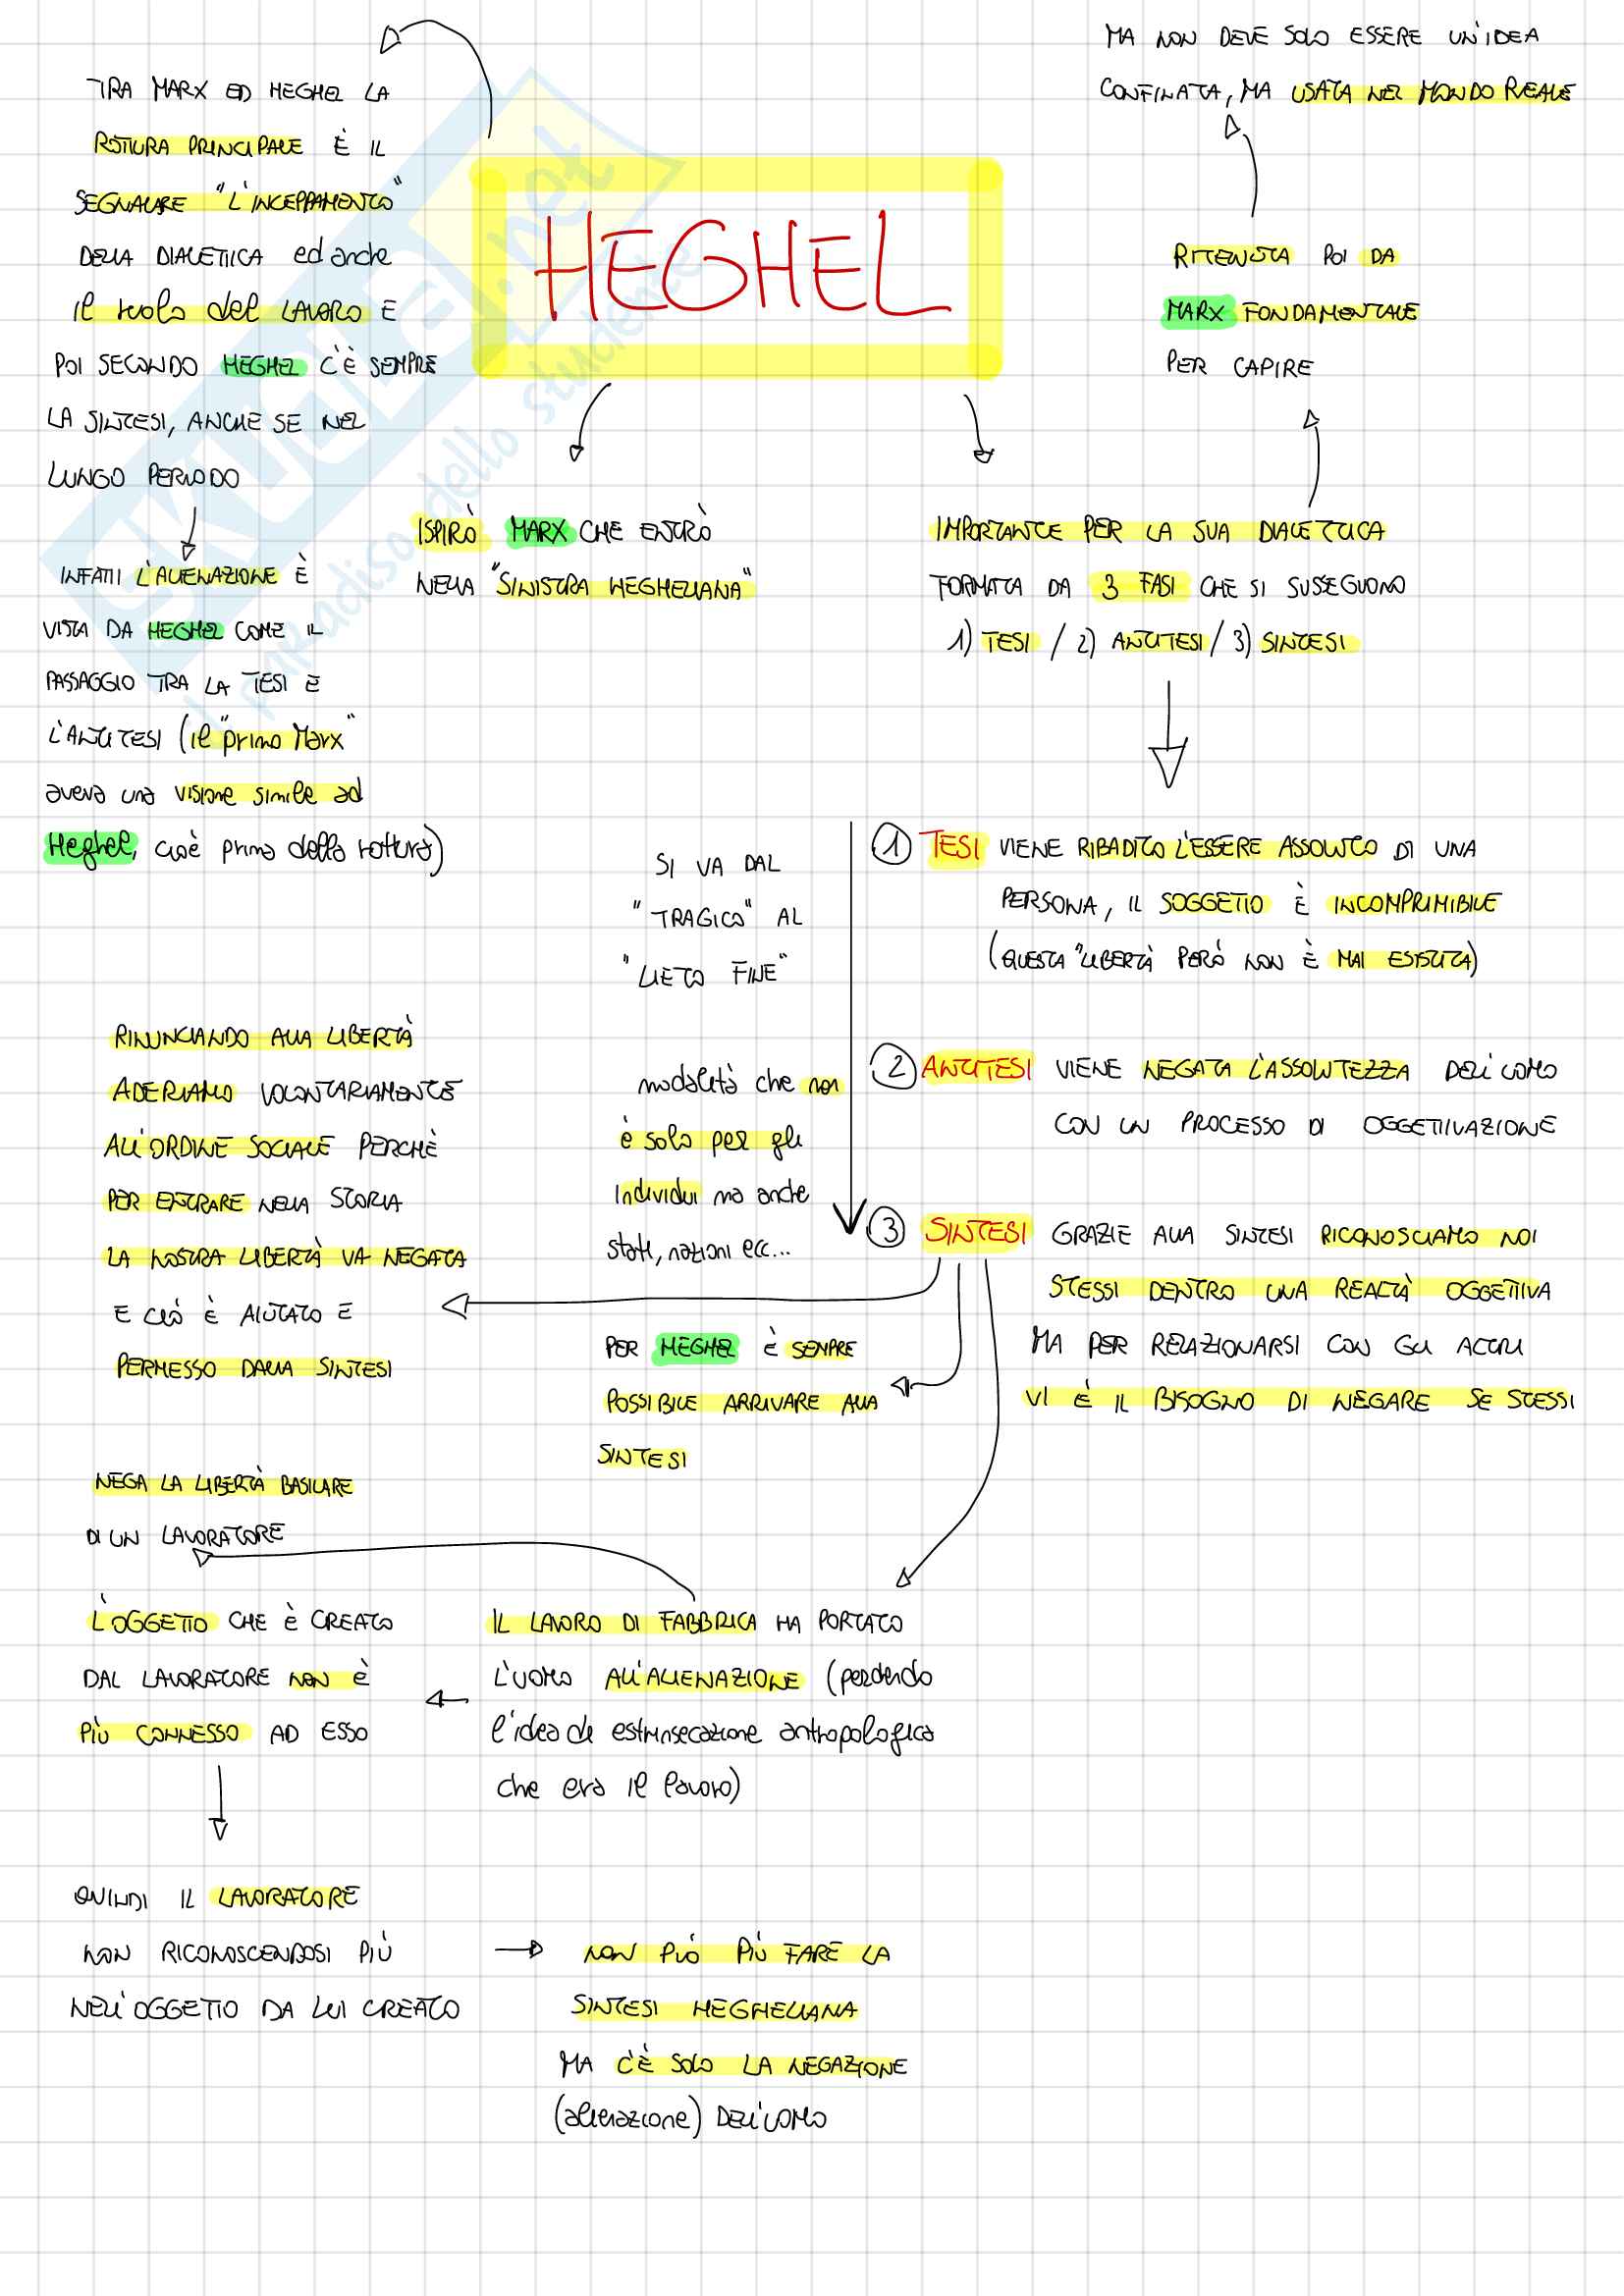 HEGHEL
TRA MARX ED HEGHEL LA
ROTTURA PRINCIPALE È IL
SEGNALARE "L'INCEPPAMENTO"
DELLA DIALETTICA ed anche
il ruolo del LAVORO E
POI SECONDO HEGHEL C'È SEMPRE
LA SINTESI, ANCHE SE NEL
LUNGO PERIODO
INFATTI L'ALIENAZIONE È
VISTA DA HEGHEL COME IL
PASSAGGIO TRA LA TESI E
L'ANTITESI (il "primo Marx"
aveva una visione simile ad
Heghel, cioè prima della rottura)
ISPIRÒ MARX CHE ENTRÒ
NELLA "SINISTRA HEGHELIANA"
MA NON DEVE SOLO ESSERE UN'IDEA
CONFINATA, MA USATA NEL MONDO REALE
RITENUTA POI DA
MARX FONDAMENTALE
PER CAPIRE
IMPORTANTE PER LA SUA DIALETTICA
FORMATA DA 3 FASI CHE SI SUSSEGUONO
1) TESI / 2) ANTITESI / 3) SINTESI
1 TESI VIENE RIBADITO L'ESSERE ASSOLUTO DI UNA
PERSONA, IL SOGGETTO È INCOMPRIMIBILE
(QUESTA "LIBERTÀ PERÒ NON È MAI ESISTITA)
2 ANTITESI VIENE NEGATA L'ASSOLUTEZZA DELL'UOMO
CON UN PROCESSO DI OGGETTIVAZIONE
3 SINTESI GRAZIE ALLA SINTESI RICONOSCIAMO NOI
STESSI DENTRO UNA REALTÀ OGGETTIVA
MA PER RELAZIONARSI CON GLI ALTRI
VI È IL BISOGNO DI NEGARE SE STESSI
SI VA DAL
"TRAGICO" AL
"LIETO FINE"
modalità che non
è solo per gli
individui ma anche
stati, nazioni ecc...
RINUNCIANDO ALLA LIBERTÀ
ADERIAMO VOLONTARIAMENTE
ALL'ORDINE SOCIALE PERCHÈ
PER ENTRARE NELLA STORIA
LA NOSTRA LIBERTÀ VA NEGATA
E CIÒ È AIUTATO E
PERMESSO DALLA SINTESI
PER HEGHEL È SEMPRE
POSSIBILE ARRIVARE ALLA
SINTESI
NEGA LA LIBERTÀ BASILARE
DI UN LAVORATORE
IL LAVORO DI FABBRICA HA PORTATO
L'UOMO ALL'ALIENAZIONE (perdendo
l'idea di estrinsecazione antropologica
che era il lavoro)
L'OGGETTO CHE È CREATO
DAL LAVORATORE NON È
PIÙ CONNESSO AD ESSO
QUINDI IL LAVORATORE
NON RICONOSCENDOSI PIÙ
NELL'OGGETTO DA LUI CREATO
NON PUÒ PIÙ FARE LA
SINTESI HEGHELIANA
MA C'È SOLO LA NEGAZIONE
(alienazione) DELL'UOMO
SKUOLA.net
il paradiso dello studente